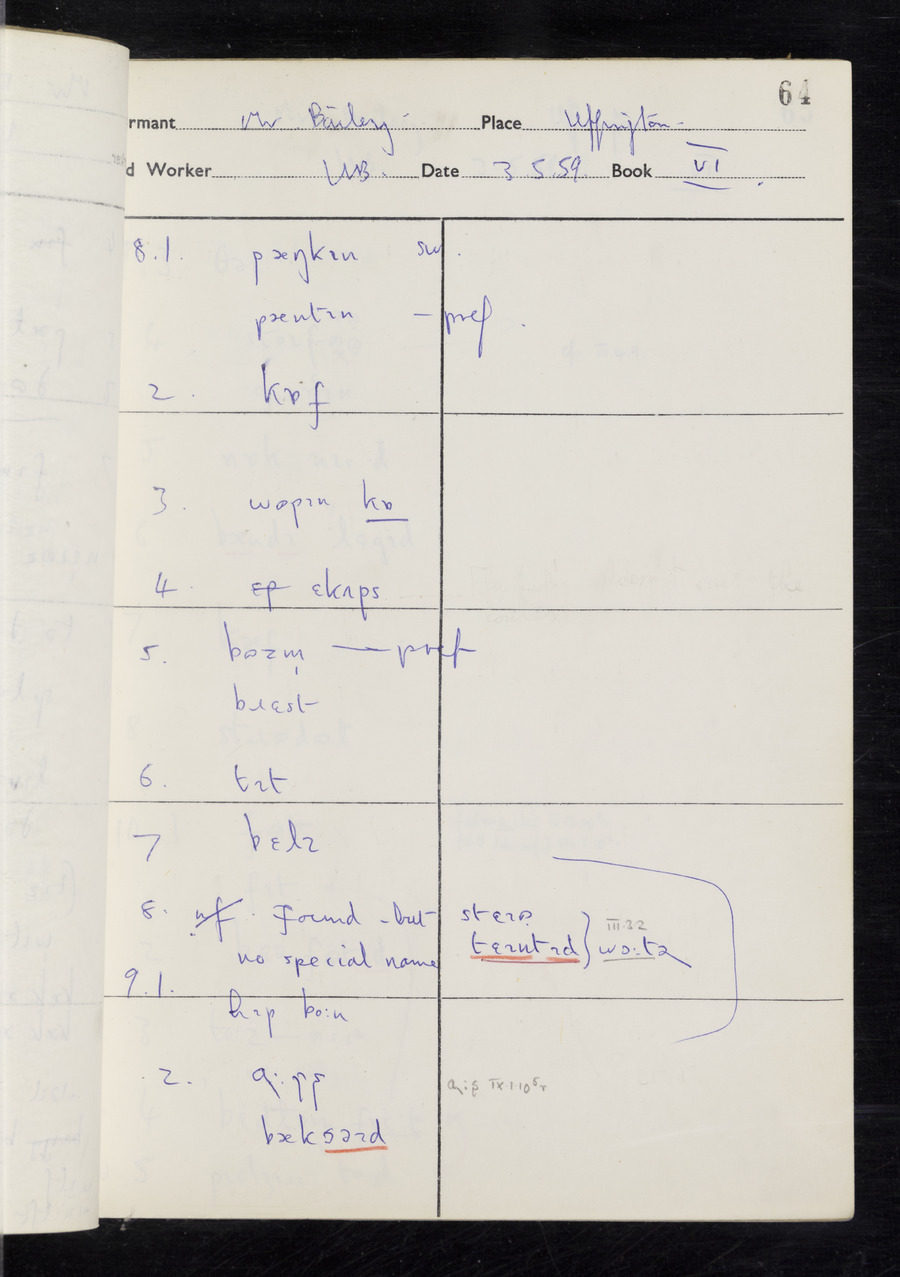 64
rmant Mr Bailey Place Uffington
d Worker Date 3.5.59. Book VI
8.1. pæŋkɪn sw.
pæntɪn – pref.
2. kɒˑf
3. wɒpɪn kɒ
4. ɛp ɛkʌps
5. bʊzm̩ — pref
bɹɛst
6. tɪt
7 bɛlɪ
8. nf. found – but stɛəz
no special name tɛɪntɪd } wɔ:tə III.3.2
9.1. hɪp bo:n
2. ɑ:ʂʂ ɑ:ʂ IX.1.10
bæksəɪd